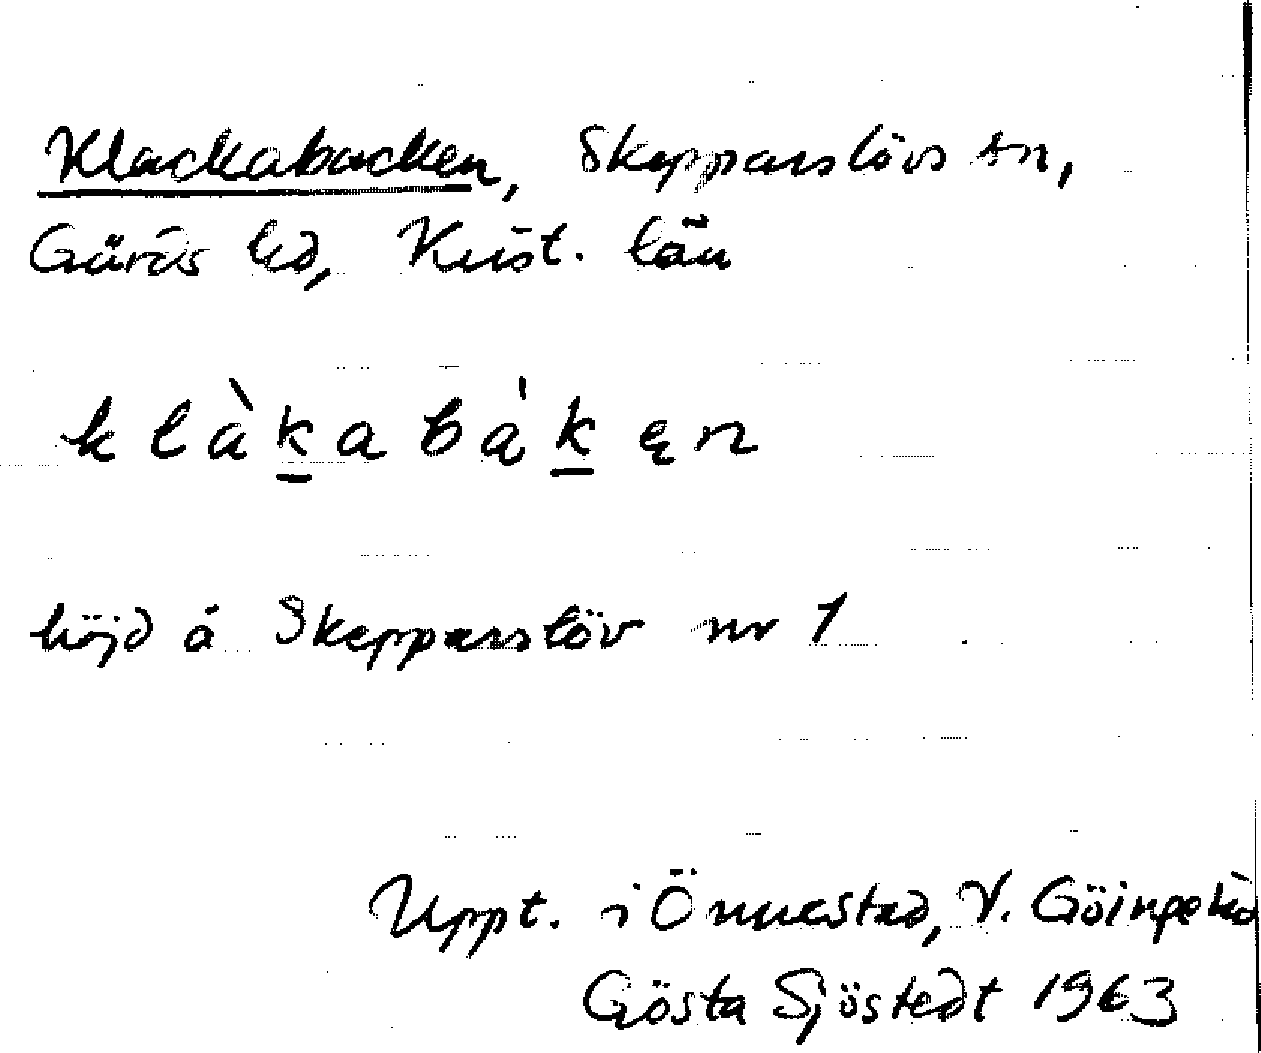 Klackabacken, Skepparslövs sn,
Gärds hd, Krist. län
klàk̲abàk̲ęn
höjd å Skepparslöv nr 1
Uppt. i Önnestad, V. Göinge hd
Gösta Sjöstedt 1963